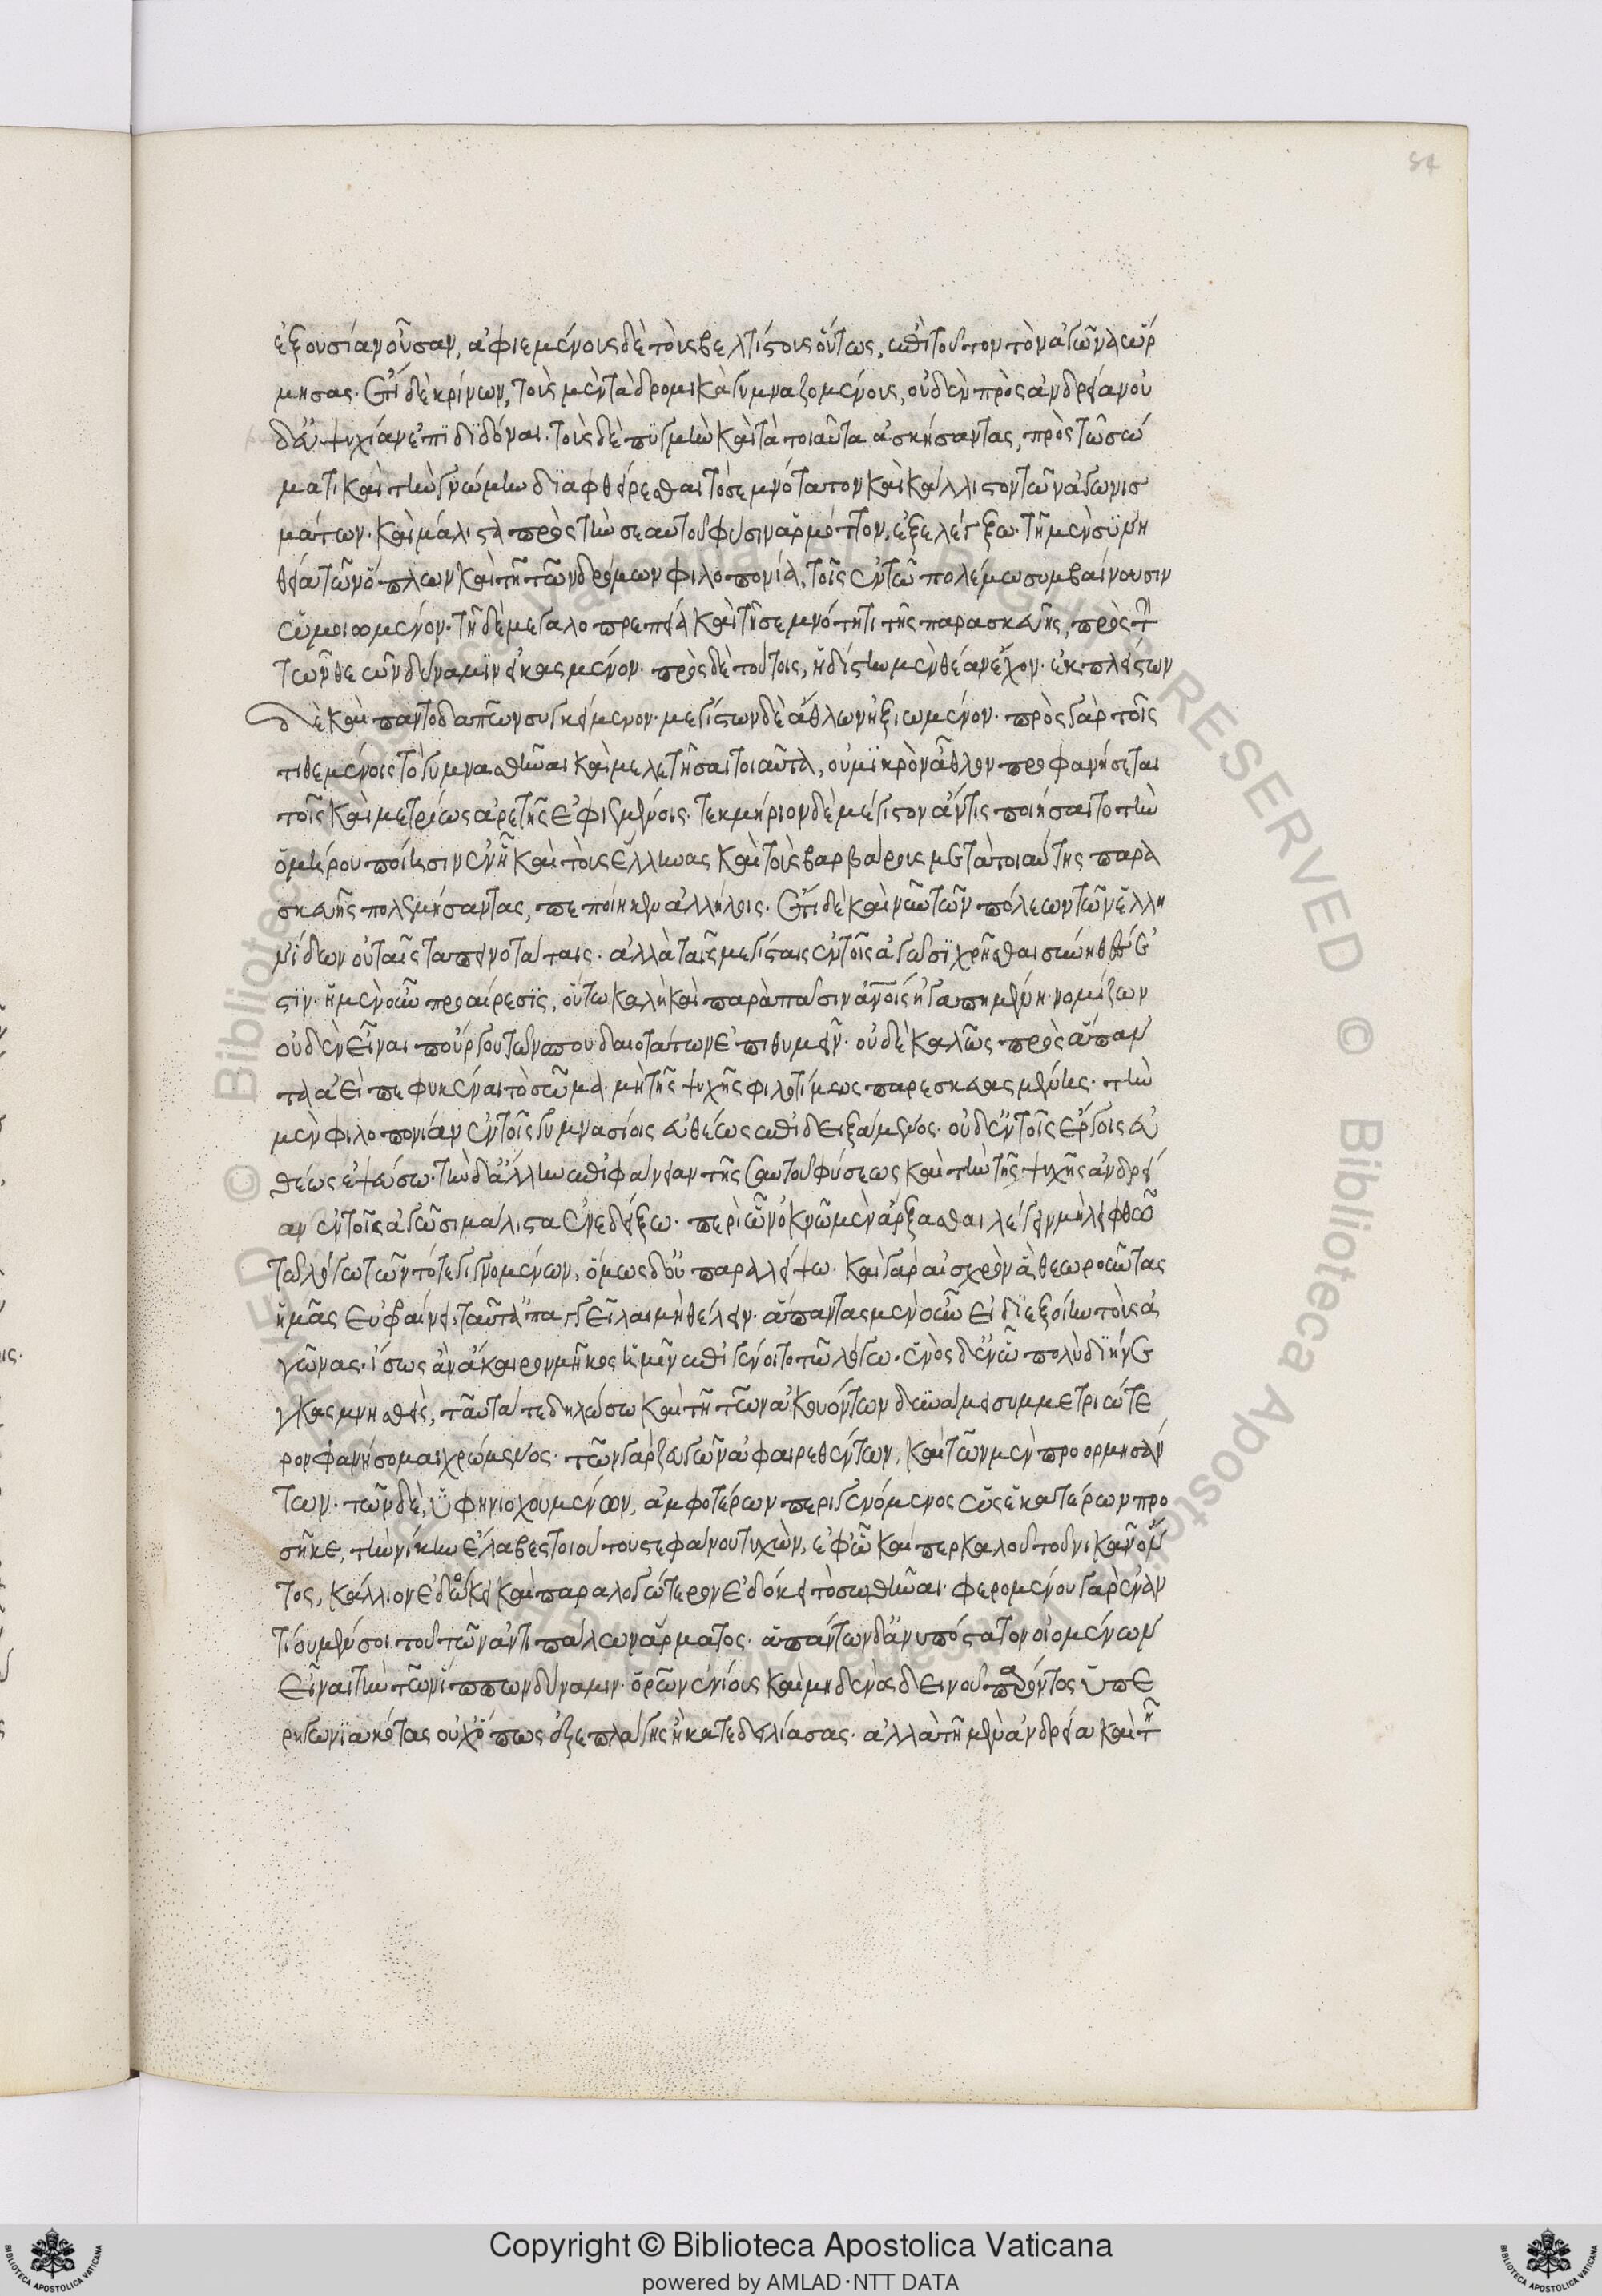 84
ἐξουσίαν οὖσαν, ἀφιεμένους δὲ τοὺς βελτίστους ὄντως, ἐπὶ τοῦτον τὸν ἀγῶνα ὥρ
μησας. ἔτι δὲ κρίνων, τοὺς μὲν τὰ δρομικὰ γυμναζομένους, οὐδὲν πρὸς ἀνδρείαν οὐ
δ' εὐψυχίαν ἐπιδιδόναι. τοὺς δὲ πυγμὴν καὶ τὰ τοιαῦτα ἀσκήσαντας, πρὸς τῷ σώ
ματι καὶ τὴν γνώμην διαφθείρεσθαι τὸ σεμνότατον καὶ κάλλιστον τῶν ἀγωνισ
μάτων. καὶ μάλιστα πρὸς τὴν σεαυτοῦ φύσιν ἁρμόττον, ἐξελέξω. τῇ μὲν συνη
θείᾳ τῶν ὅπλων καὶ τῇ τῶν δρόμων φιλοπονίᾳ, τοῖς ἐν τῷ πολέμῳ συμβαίνουσιν
ὡμοιωμένον. τῇ δὲ μεγαλοπρεπείᾳ καὶ τῇ σεμνότητι τῆς παρασκευῆς, πρὸς τὴν
τῶν θεῶν δύναμιν εἰκασμένον. πρὸς δὲ τούτοις, ἡδίστην μὲν θέαν ἔχον. ἐκ πλείστων
δὲ καὶ παντοδαπῶν συγκείμενον. μεγίστων δὲ ἄθλων ἠξιωμένον. πρὸς γὰρ τοῖς
τιθεμένοις τὸ γυμνασθῆναι καὶ μελετῆσαι τοιαῦτα, οὐ μικρὸν ἆθλον προφανήσεται
τοῖς καὶ μετρίως ἀρετῆς ἐφιεμένοις. τεκμήριον δὲ μέγιστον ἄν τις ποιήσαιτο τὴν
ὁμήρου ποίησιν ἐν ᾗ καὶ τοὺς ἕλληνας καὶ τοὺς βαρβάρους μετὰ τοιαύτης παρα
σκευῆς πολεμήσαντας, πεποίηκεν ἀλλήλοις. ἔτι δὲ καὶ νῦν τῶν πόλεων τῶν ἑλλη
νίδων οὐ ταῖς ταπεινοτάταις. ἀλλὰ ταῖς μεγίσταις ἐν τοῖς ἀγῶσι χρῆσθαι σύνηθές ἐ
στιν. ἡ μὲν οὖν προαίρεσις, οὕτω καλὴ καὶ παρὰ πᾶσιν ἀνοις ἠγαπημένη. νομίζων
οὐδὲν εἶναι προὔργου τῶν σπουδαιοτάτων ἐπιθυμεῖν. οὐδὲ καλῶς πρὸς ἅπαν
τα ἀεὶ πεφυκέναι τὸ σῶμα. μὴ τῆς ψυχῆς φιλοτίμως παρεσκευασμένης. τὴν
μὲν φιλοπονίαν ἐν τοῖς γυμνασίοις εὐθέως ἐπιδειξάμενος. οὐδ' ἐν τοῖς ἔργοις εὐ
θέως ἐψεύσω. τὴν δ' ἄλλην ἐπιφάνειαν τῆς σαυτοῦ φύσεως καὶ τὴν τῆς ψυχῆς ἀνδρεί
αν ἐν τοῖς ἀγῶσι μάλιστα ἐνεδείξω. περὶ ὧν ὀκνῶ μὲν ἄρξασθαι λέγειν μὴ λειφθῶ
τῷ λόγῳ τῶν τότε γιγνομένων, ὅμως δ' οὐ παραλείψω. καὶ γὰρ αἰσχρὸν ἃ θεωροῦντας
ἡμᾶς εὐφραίνει, ταῦτ' ἀπαγγεῖλαι μὴ θέλειν. ἅπαντας μὲν οὖν εἰ διεξοίην τοὺς ἀ
γῶνας. ἴσως ἂν ἄκαιρον μῆκος ἡμῖν ἐπιγένοιτο τῷ λόγῳ. ἑνὸς δ' ἐν ᾧ πολὺ διήνε
γκας μνησθείς, ταῦτά τε δηλώσω καὶ τῇ τῶν ἀκουόντων δυνάμει συμμετριώτε
ρον φανήσομαι χρώμενος. τῶν γὰρ ζευγῶν ἀφαιρεθέντων, καὶ τῶν μὲν προορμησάν
των. τῶν δὲ, ὑφηνιοχουμένων, ἀμφοτέρων περιγενόμενος ὡς ἑκατέρων προ
σῆκε, τὴν νίκην ἔλαβες τοιούτου στεφάνου τυχὼν, ἐφ' ᾧ καίπερ καλοῦ τοῦ νικᾶν ὄν
τος, κάλλιον ἐδόκει καὶ παραλογώτερον ἐδόκει τὸ σωθῆναι. φερομένου γὰρ ἐναν
τίου μέν σοι τοῦ τῶν ἀντιπάλων ἅρματος. ἁπάντων δ' ἀνυπόστατον οἰομένων
εἶναι τὴν τῶν ἵππων δύναμιν. ὁρῶν ἐνίους καὶ μηδενὸς δεινοῦ παρόντος ὑπε
ρηγωνιακότας οὐχ ὅπως ἐξεπλάγης ἢ κατεδειλίασας. ἀλλὰ τῇ μὲν ἀνδρείᾳ καὶ τ
Copyright © Biblioteca Apostolica Vaticana
powered by AMLAD·NTT DATA